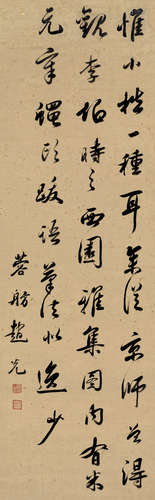 惟小楷一種耳業從京師曾得
觀李伯時之西園雅集圖內有米
元章禮頭跋語筆法似逸少
蓉舫趙光